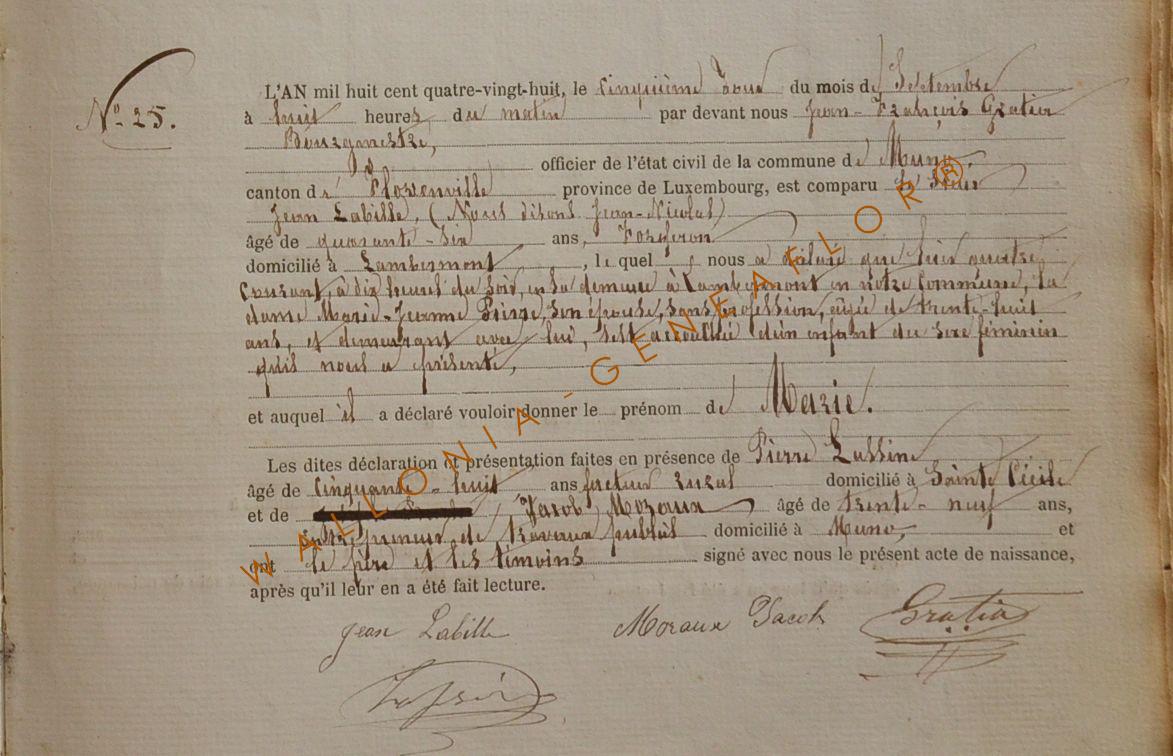 N° 25.
L'AN mil huit cent quatre-vingt-huit, le cinquième jour du mois de Septembre
à huit heures du matin par devant nous Jean-François Gratia
Bourgmestre,
officier de l'état civil de la commune de Muno,
canton de Florenville province de Luxembourg, est comparu le Sieur
Jean Labille, (Nous disons Jean-Nicolas)
âgé de quarante-six ans, Forgeron
domicilié à Lambermont, le quel nous a déclaré que hier quatre
courant, à dix heures du soir, en sa demeure à Lambermont en notre commune, la
dame Marie-Jeanne Pierre, son épouse, sans profession, âgée de trente-huit
ans, et demeurant avec lui, s'est accouchée d'un enfant du sexe féminin
qu'il nous a présenté,
et auquel il a déclaré vouloir donner le prénom de Marie.
Les dites déclaration et présentation faites en présence de Pierre
âgé de cinquante-huit ans facteur rural domicilié à Sainte Cécile
et de Jacob Moraux âgé de trente-neuf ans,
entrepreneur de travaux publics domicilié à Muno, et
ont le père et les témoins signé avec nous le présent acte de naissance,
après qu'il leur en a été fait lecture.
Jean Labille Moraux Jacob Gratia
WALLONIA-GENEAFLOR®